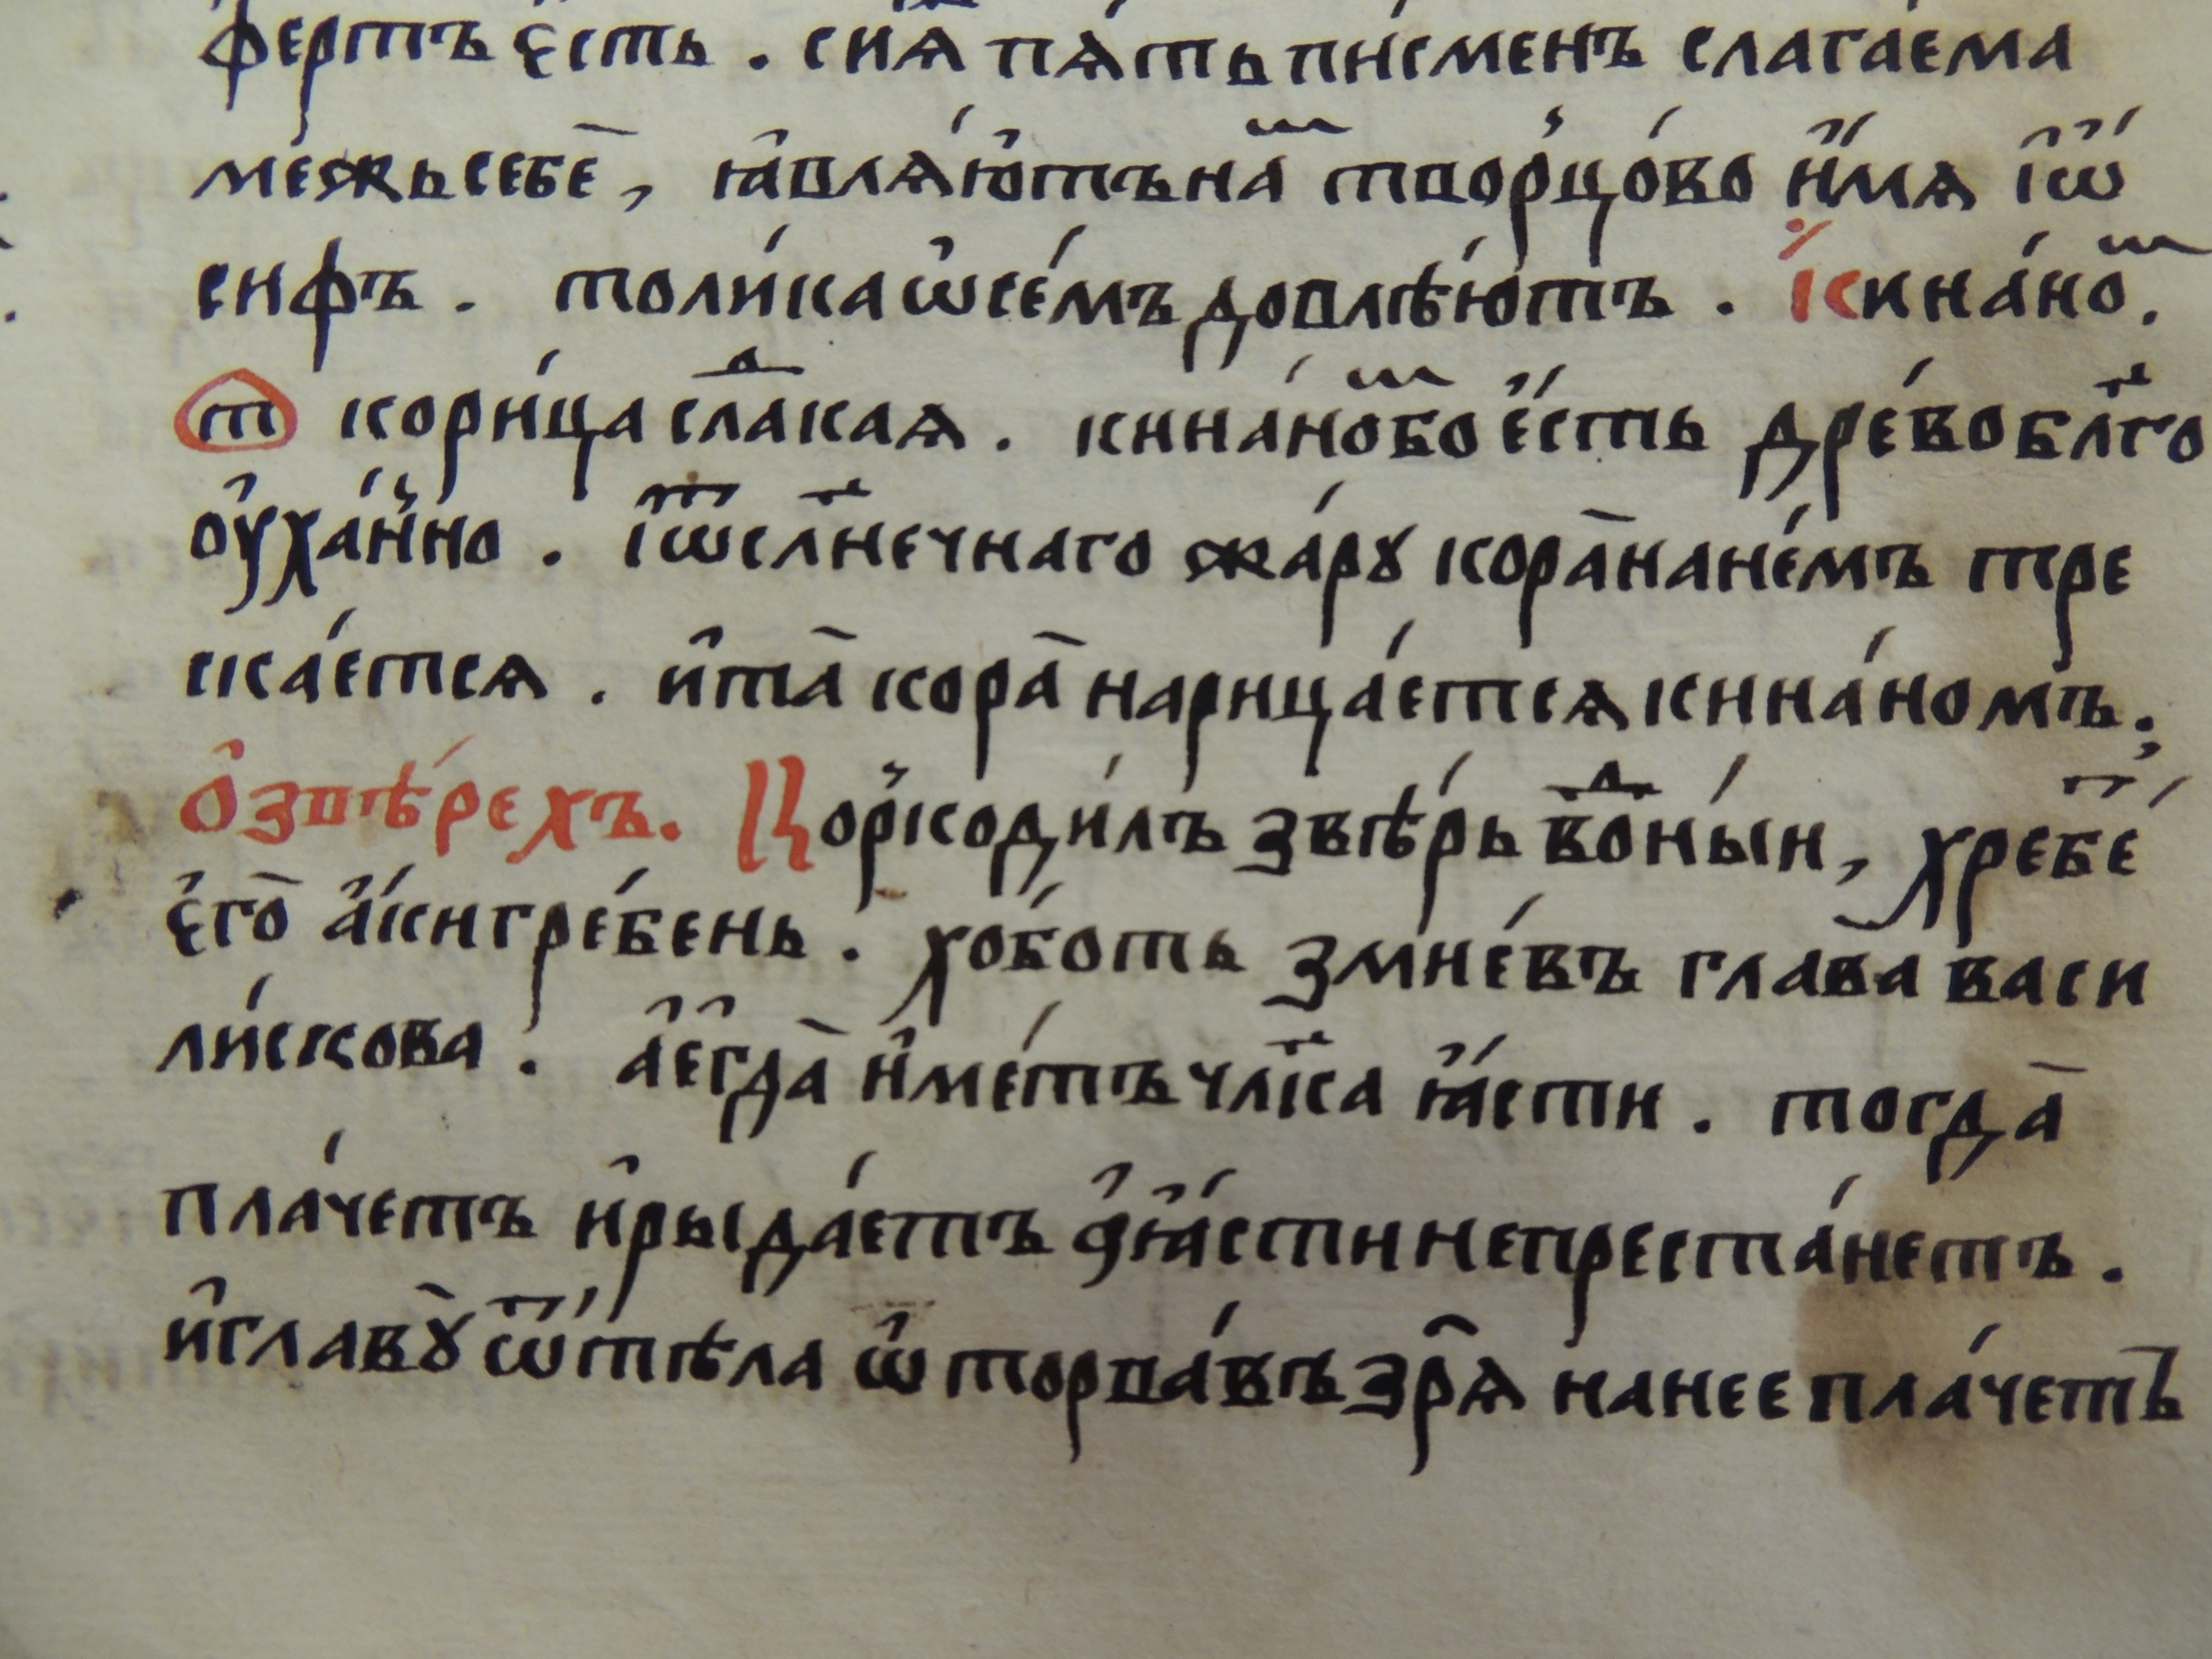 фе́ртъ є҆́сть . сиѧ̑ пѧ́ть пи́сменъ слага́ема
ме́жь себѐ , ꙗ҆влѧ́ю҆тъ наⷨ҇ тво́рцо́во и҆́мѧ і҆ѡ҆́
сифъ . толи́ка ѡ҆ се́мъ довлѣ́ютъ . Кина́ноⷨ .
т кори́ца слаⷣкаѧ . кина́ноⷨ бо є҆́сть дре́во блⷢ҇о
ᲂу҆ха́нно . і ѿ слн҃ечнаго жа́рꙋ кора̀ на не́мъ тре
ска́етсѧ . и҆ та̀ кора̀ нарица́етсѧ кина́номъ ;
О҆ звѣ́рехъ . Коркоди́лъ звѣ́рь воⷣны́и , хребеⷮ
є҆го̀ а҆́ки гре́бень . хо́боть змие́въ глава̀ васи
ли́скова . а҆ є҆гда̀ и҆ме́тъ члⷦ҇а ꙗ҆́сти . тогда̀
пла́четъ и҆ рыда́етъ а҆ ꙗ҆́сти не преста́нетъ .
и҆ главꙋ̀ ѿ тѣ́ла ѡ҆торва́въ зрѧ̀ на нее пла́четъ